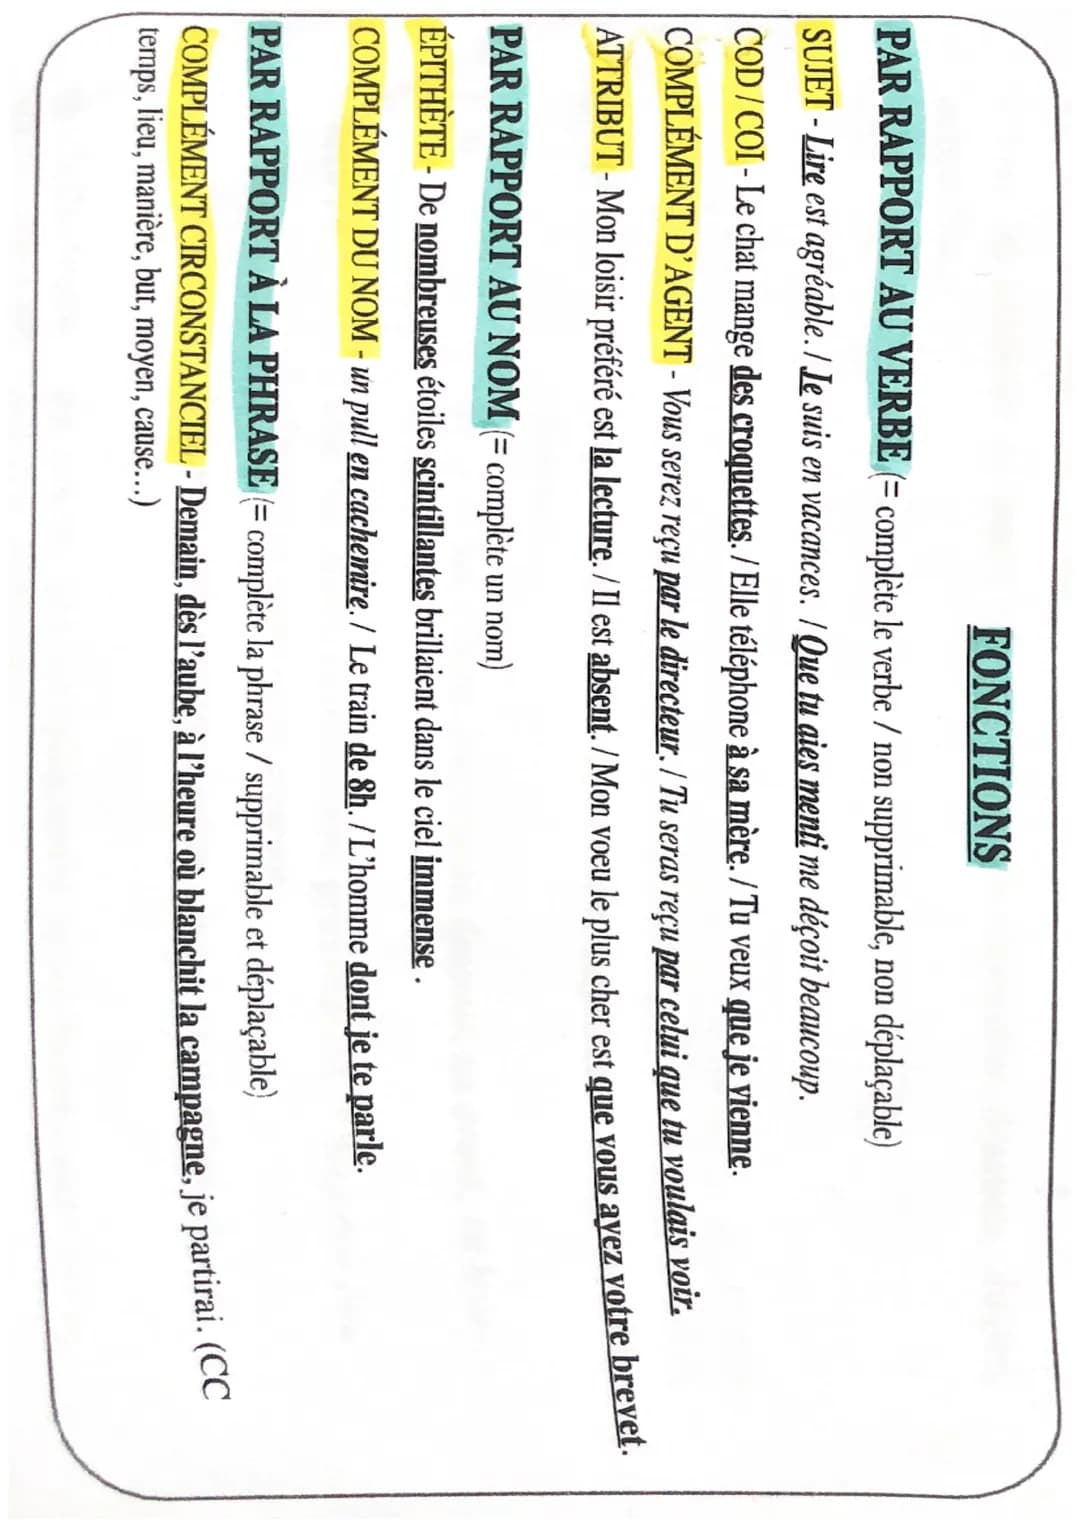 FONCTIONS
PAR RAPPORT AU VERBE (= complète le verbe / non supprimable, non déplaçable)
SUJET - Lire est agréable. / Je suis en vacances. / Que tu aies menti me déçoit beaucoup.
COD / COI - Le chat mange des croquettes. / Elle téléphone à sa mère. / Tu veux que je vienne.
COMPLÉMENT D'AGENT - Vous serez reçu par le directeur. / Tu seras reçu par celui que tu voulais voir.
ATTRIBUT - Mon loisir préféré est la lecture. / Il est absent. / Mon voeu le plus cher est que vous ayez votre brevet.
PAR RAPPORT AU NOM (= complète un nom)
ÉPITHÈTE - De nombreuses étoiles scintillantes brillaient dans le ciel immense .
COMPLÉMENT DU NOM - un pull en cachemire. / Le train de 8h. / L'homme dont je te parle.
PAR RAPPORT À LA PHRASE (= complète la phrase / supprimable et déplaçable)
COMPLÉMENT CIRCONSTANCIEL - Demain, dès l'aube, à l'heure où blanchit la campagne, je partirai. (CC
temps, lieu, manière, but, moyen, cause...)